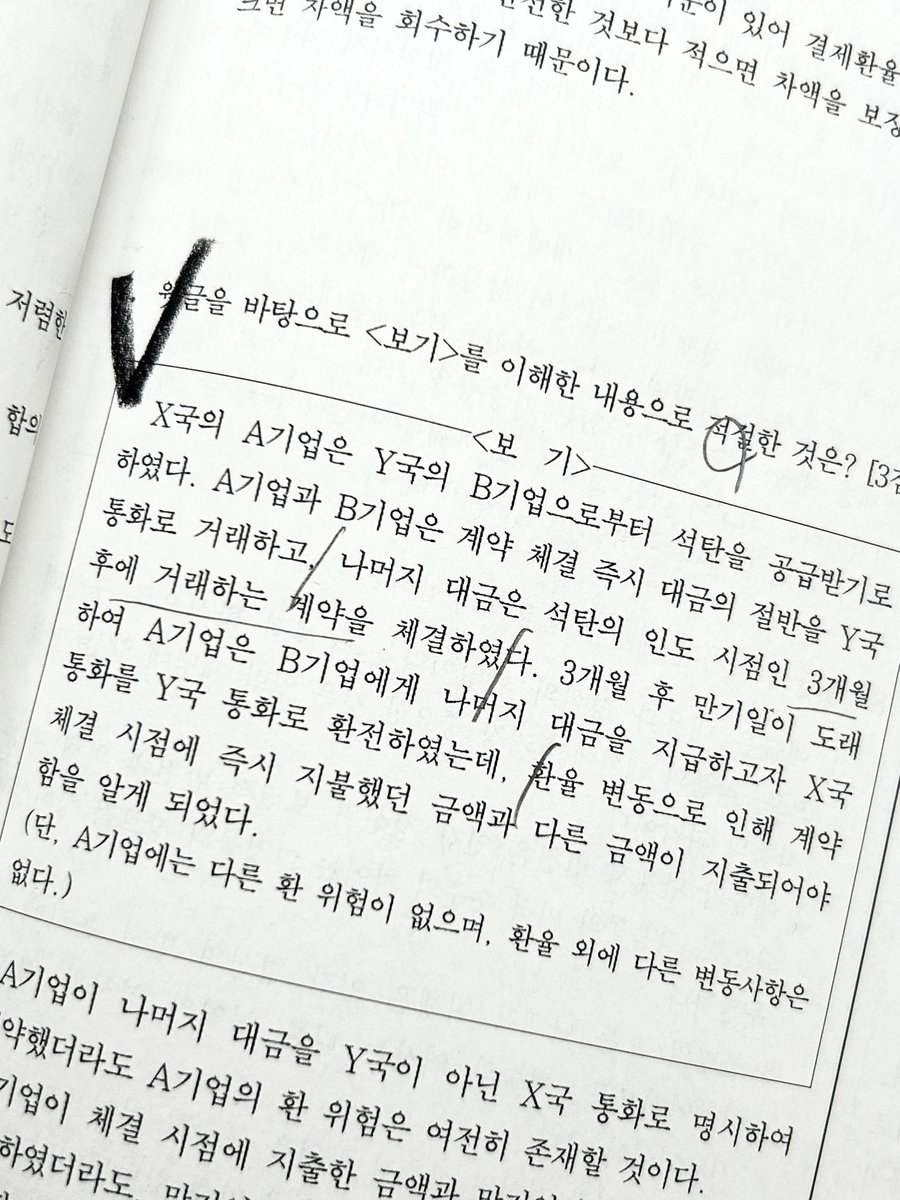 있어 결제환율
것보다 적으면 차액을 보장
크면 차액을 회수하기 때문이다.
저렴한
합의
윗글을 바탕으로 <보기>를 이해한 내용으로 적절한 것은? [3점
<보 기>
X국의 A기업은 Y국의 B기업으로부터 석탄을 공급받기로
하였다. A기업과 B기업은 계약 체결 즉시 대금의 절반을 Y국
통화로 거래하고, 나머지 대금은 석탄의 인도 시점인 3개월
후에 거래하는 계약을 체결하였다. 3개월 후 만기일이 도래
하여 A기업은 B기업에게 나머지 대금을 지급하고자 X국
통화를 Y국 통화로 환전하였는데, 환율 변동으로 인해 계약
체결 시점에 즉시 지불했던 금액과 다른 금액이 지출되어야
함을 알게 되었다.
(단, A기업에는 다른 환 위험이 없으며, 환율 외에 다른 변동사항은
없다.)
A기업이 나머지 대금을 Y국이 아닌 X국 통화로 명시하여
약했더라도 A기업의 환 위험은 여전히 존재할 것이다.
기업이 체결 시점에 지출한 금액과
하였더라도